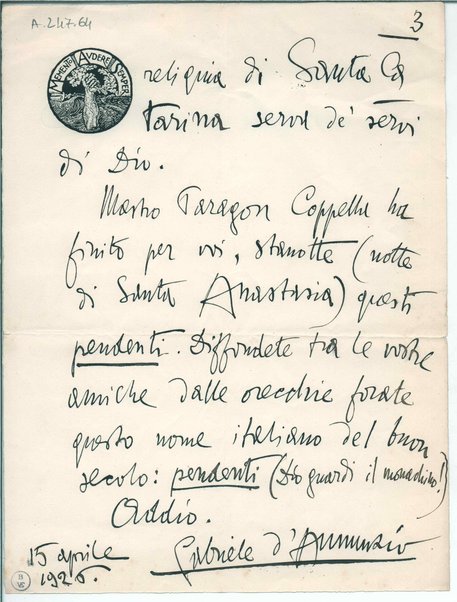 A.247.64
3
MEMENTO AUDERE SEMPER
religina di Santa Ca
tarina serva de' servi
di Dio.
Mastro Paragon Coppella ha
finito per voi, stanotte (notte
di Santa Anastasia) questi
pendenti. Diffondete tra le vostre
amiche dalle orecchie forate
questo nome italiano del buon
secolo: pendenti (Dio guardi il monachino!)
Addio.
Gabriele d'Annunzio
15 aprile
1926.